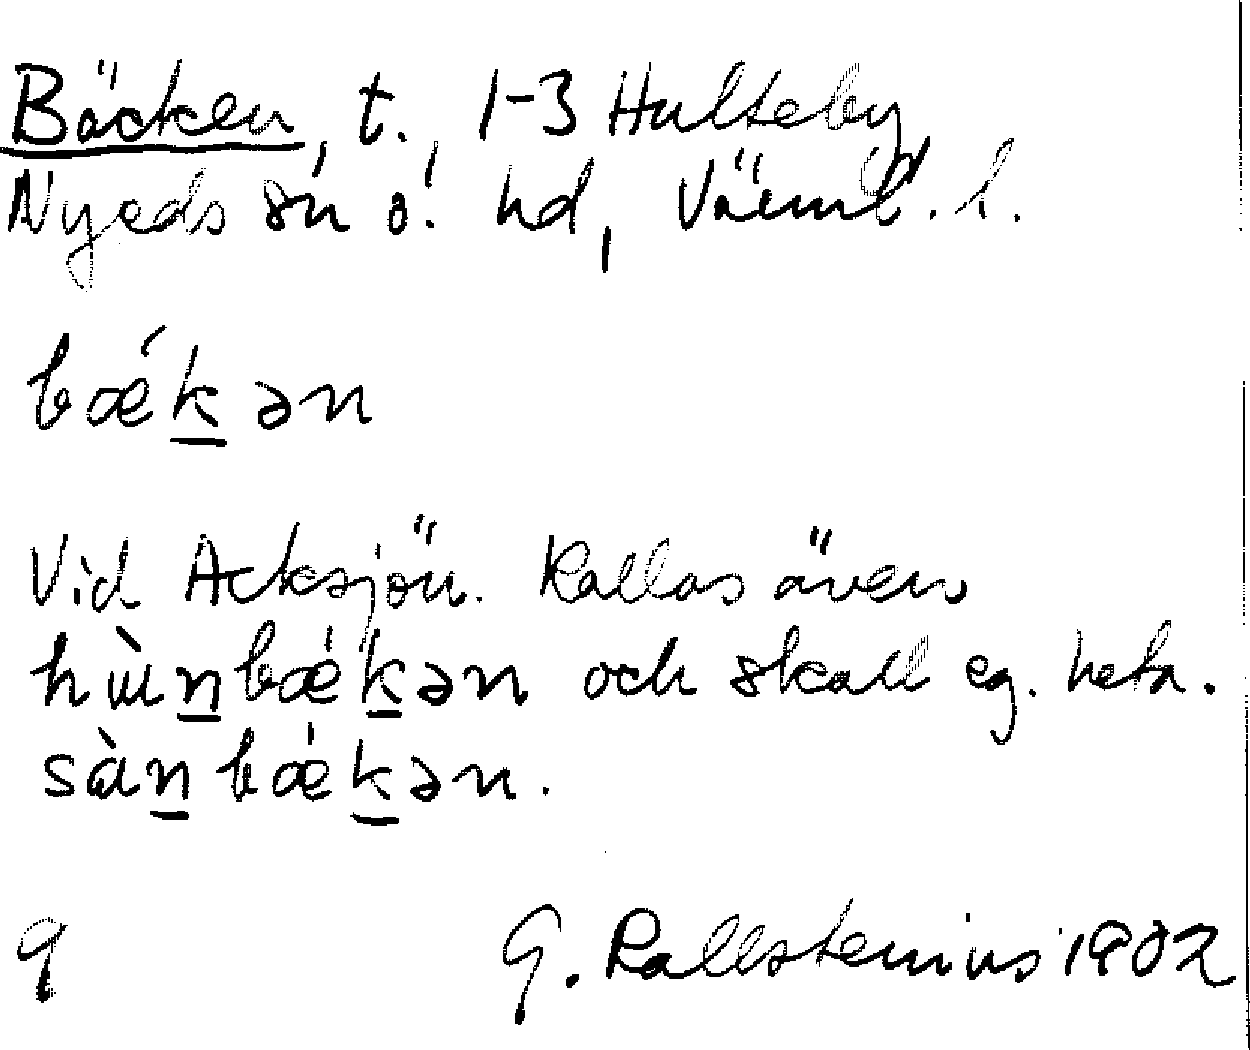 Bäcken, t., 1-3 Hulteby,
Nyeds sn o. hd, Värml. l.
bǽk̲ən
Vid Acksjön. Kallas även
hɯ̀n̲bǽk̲ən och skall eg. heta.
sàn̲bǽk̲ən.
9 G. Kallstenius 1902